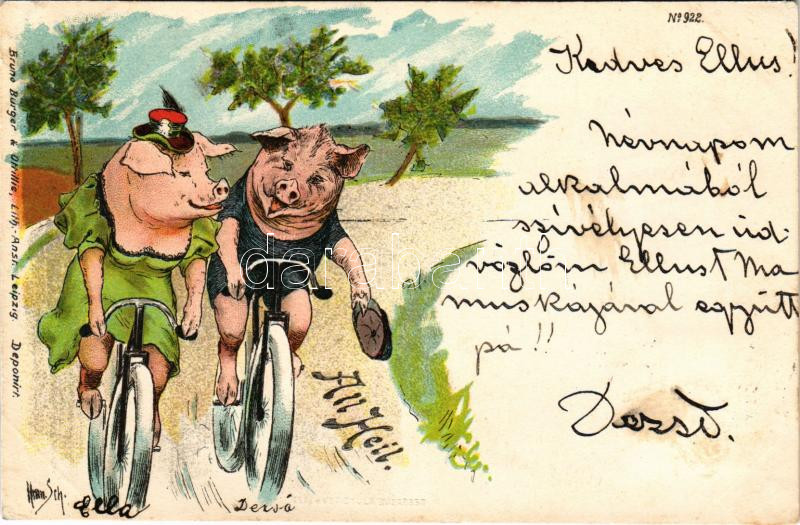 No 922.
Kedves Ellus!
Névnapom
alkalmából
szívélyesen üd-
vözlöm Ellust Ma
muskájával együtt
pá!!
Dezső.
All Heil.
Ella
Dezső
Bruno Bürger & Ottillie, Lith. Anst. Leipzig. Deponirt.
darabanth